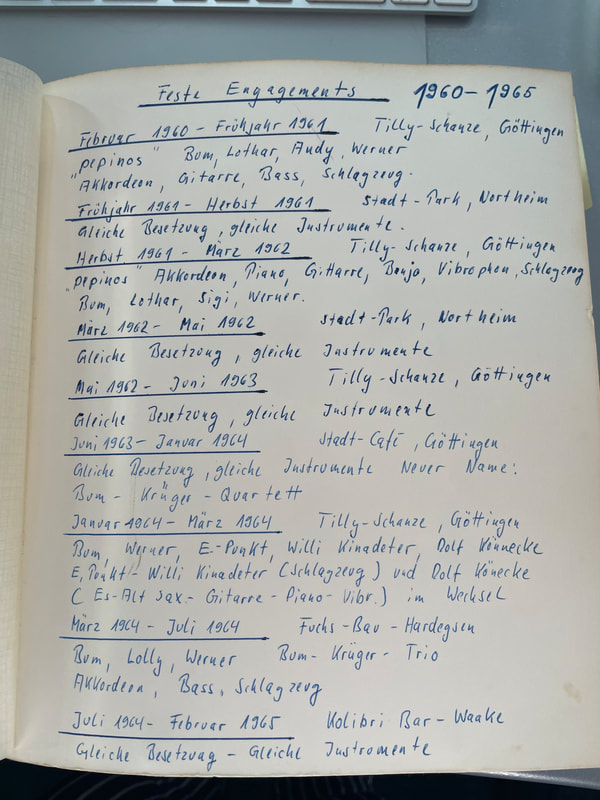 Feste Engagements 1960-1965
Februar 1960 - Frühjahr 1961 Tilly-Schanze, Göttingen
"pepinos" Bum, Lothar, Andy, Werner
Akkordeon, Gitarre, Bass, Schlagzeug.
Frühjahr 1961 - Herbst 1961 Stadt-Park, Northeim
Gleiche Besetzung, gleiche Instrumente.
Herbst 1961 - März 1962 Tilly-Schanze, Göttingen
"pepinos" Akkordeon, Piano, Gittarre, Bonjo, Vibrophon, Schlagzeug
Bum, Lothar, Sigi, Werner.
März 1962 - Mai 1962 Stadt-Park, Northeim
Gleiche Besetzung, gleiche Instrumente
Mai 1962 - Juni 1963 Tilly-Schanze, Göttingen
Gleiche Besetzung, gleiche Instrumente
Juni 1963 - Januar 1964 Stadt-Café, Göttingen
Gleiche Besetzung, gleiche Instrumente Neuer Name:
Bum - Krüger - Quartett
Januar 1964 - März 1964 Tilly-Schanze, Göttingen
Bum, Werner, E.-Punkt, Willi Kinadeter, Dolf Könnecke
E, Punkt - Willi Kinadeter (Schlagzeug) und Dolf Könecke
(Es-Alt sax.- Gitarre - Piano - Vibr.) im Wechsel
März 1964 - Juli 1964 Fuchs-Bau - Hardegsen
Bum, Lolly, Werner Bum - Krüger - Trio
Akkordeon, Bass, Schlagzeug
Juli 1964 - Februar 1965 Kolibri Bar - Waake
Gleiche Besetzung - Gleiche Instrumente